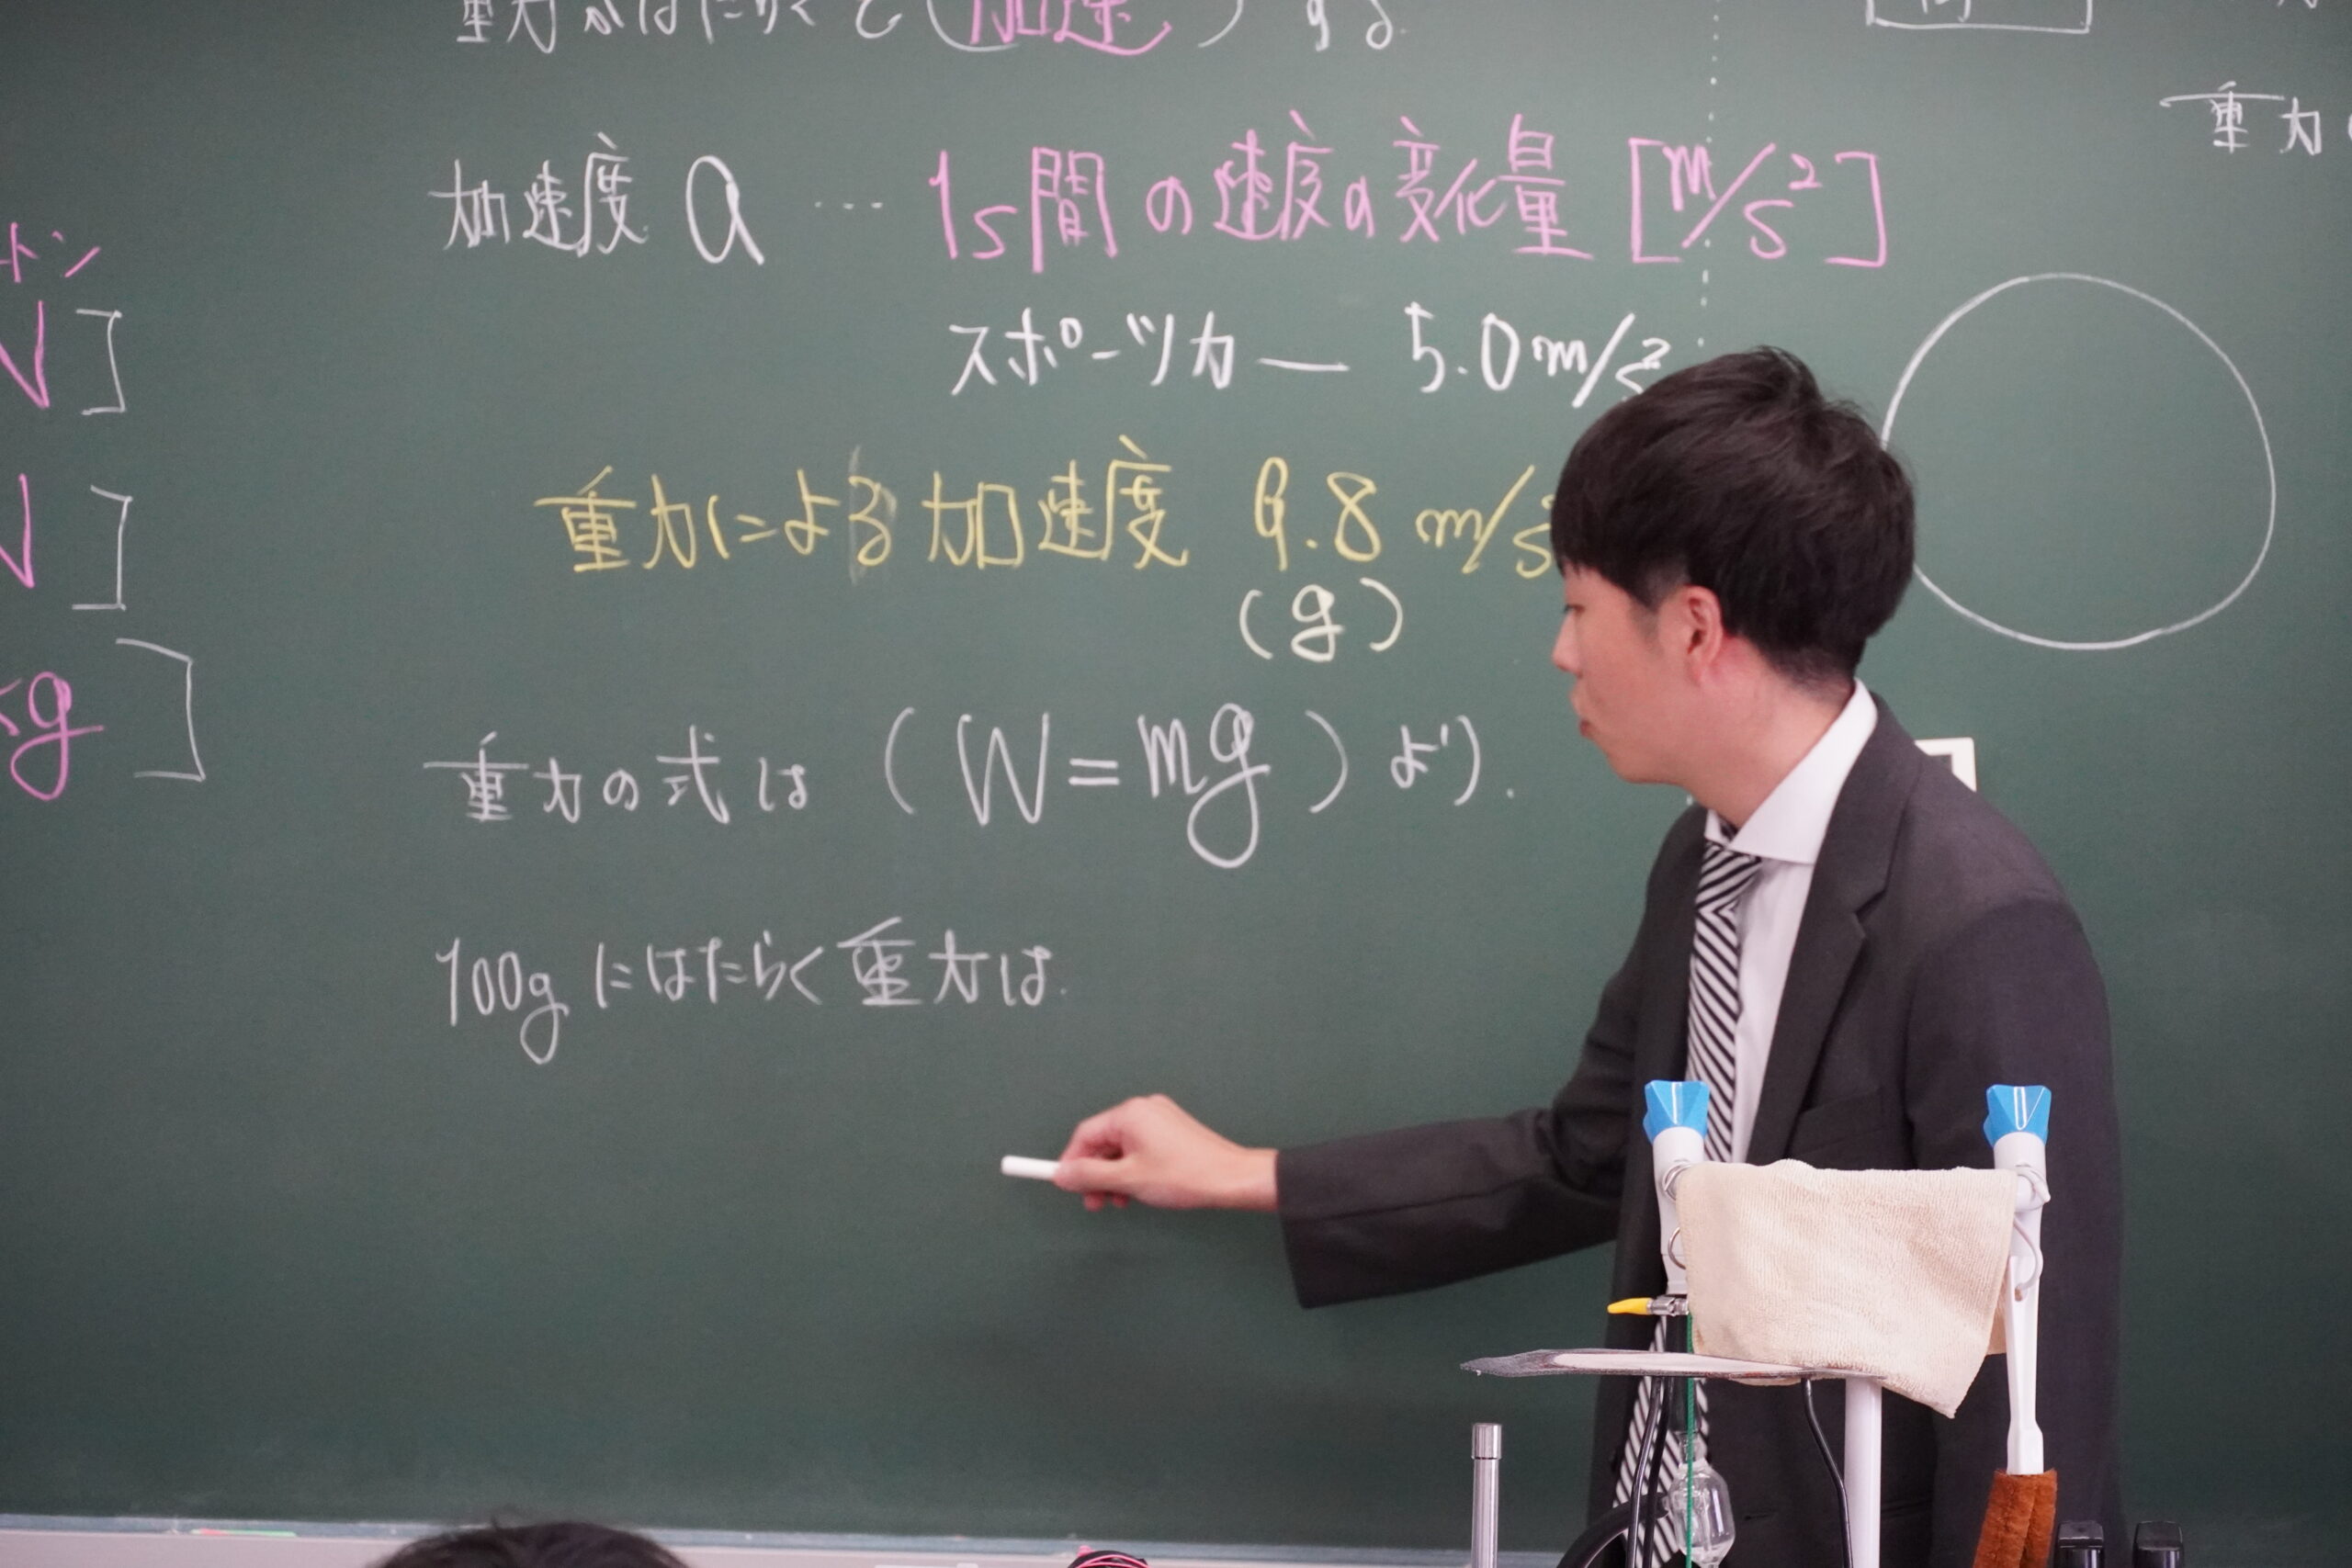 重力がはたらくと(加速)する.
加速度 a … 1s間の速度の変化量 [m/s²]
スポーツカー 5.0m/s²
重力による加速度 9.8 m/s²
(g)
重力の式は (W=mg) より.
100gにはたらく重力は
トン
N]
N]
kg]
重力